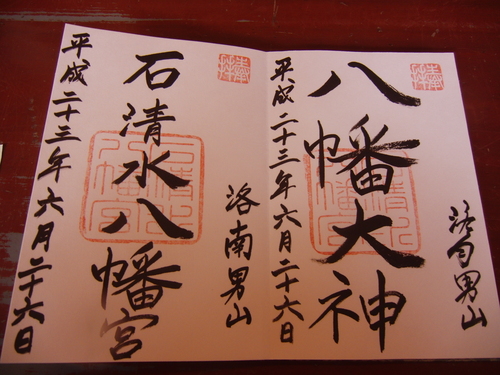 洛南男山
八幡大神
平成二十三年六月二十六日
奉拝
洛南男山
石清水八幡宮
平成二十三年六月二十六日